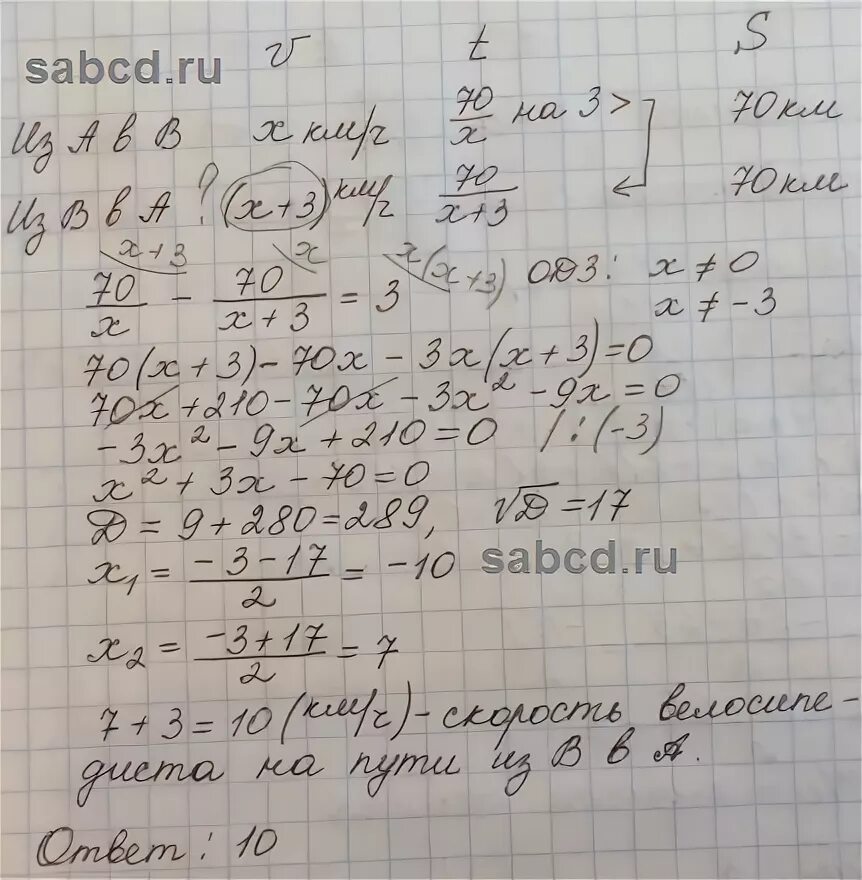 v t S
sabcd.ru
Из А в В x км/ч 70/x на 3 > 70 км
Из В в А ? (x+3) км/ч 70/(x+3) 70 км
x+3 x x(x+3)
70/x - 70/(x+3) = 3 ОДЗ: x ≠ 0
x ≠ -3
70(x+3)-70x-3x(x+3)=0
70x+210-70x-3x²-9x=0
-3x²-9x+210=0 /:(-3)
x²+3x-70=0
D=9+280=289, √D=17
x₁ = (-3-17)/2 = -10 sabcd.ru
x₂ = (-3+17)/2 = 7
7+3=10 (км/ч)-скорость велосипе-
диста на пути из В в А.
Ответ: 10